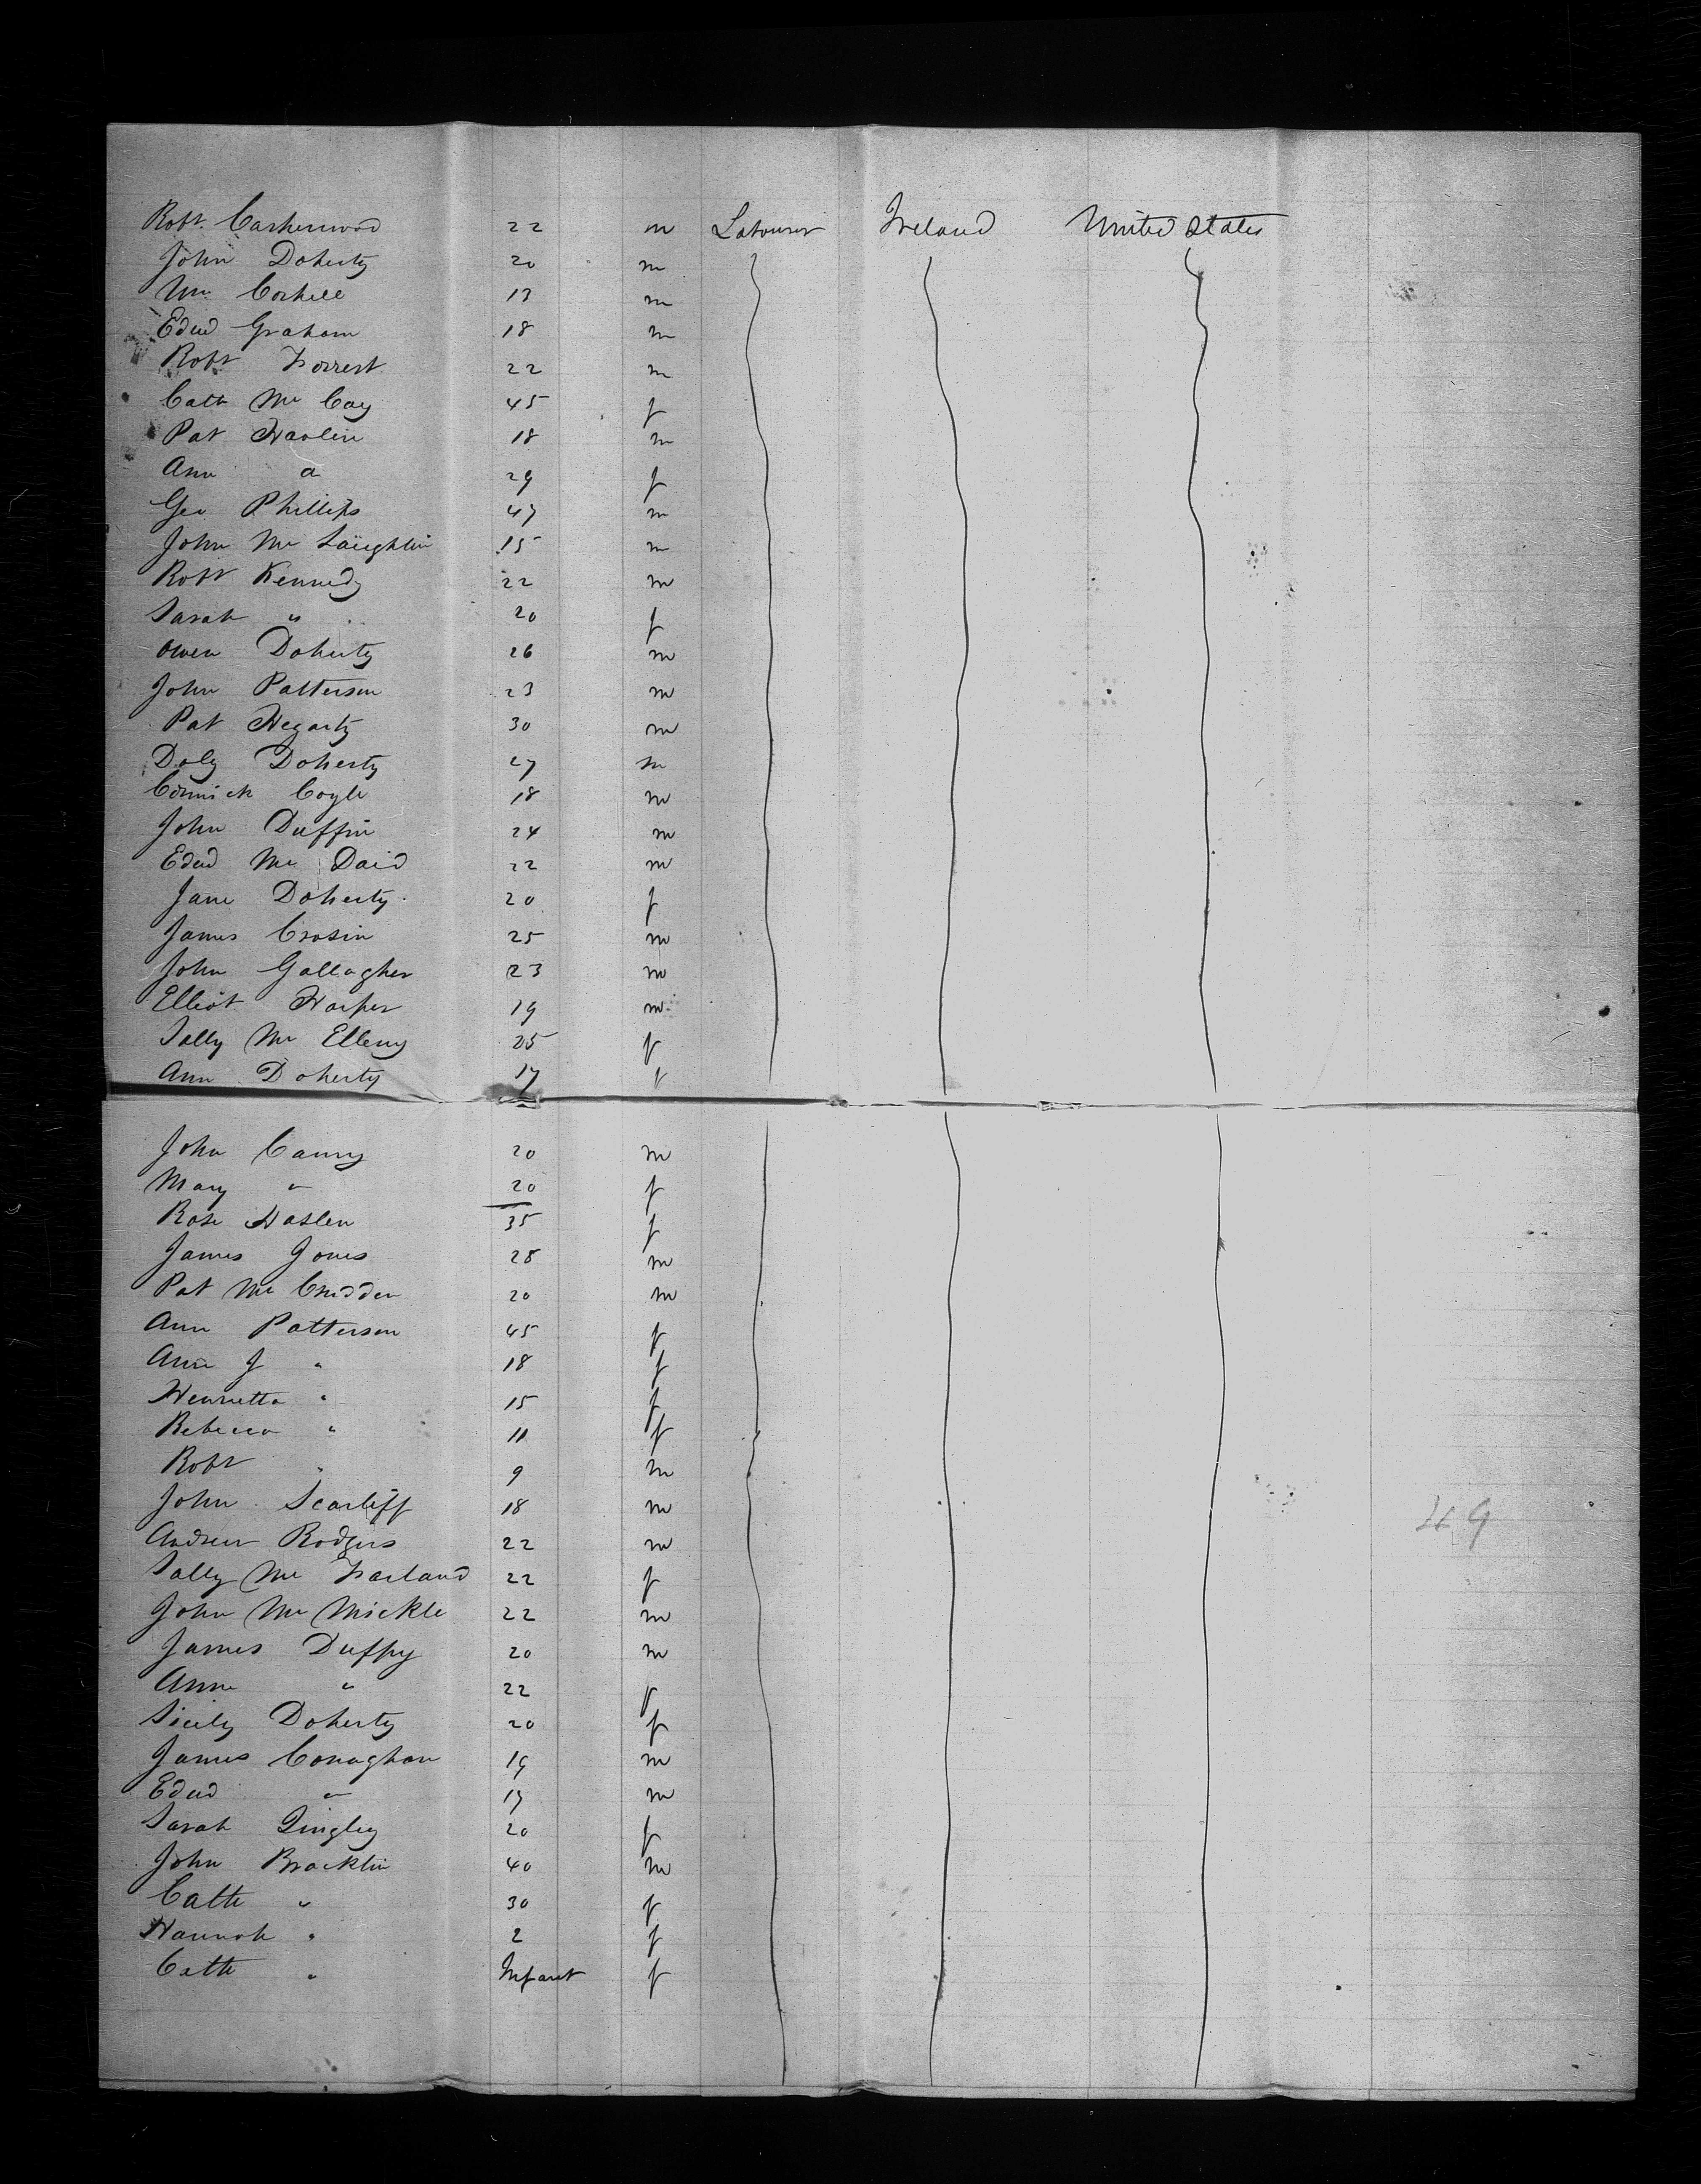 Robt. Casherwood 22 m Labourer Ireland United States
John Doherty 20 m
Wm Corhill 13 m
Edwd Graham 18 m
Robt Forrest 22 m
Cath Mc Coy 45 f
Pat Harlin 18 m
Ann a 29 f
Geo Phillips 47 m
John Mc Laughlin 15 m
Robt Kennedy 22 m
Sarah " 20 f
Owen Doherty 26 m
John Patterson 23 m
Pat Hegarty 30 m
Doly Doherty 27 m
Cormick Coyle 18 m
John Duffin 24 m
Edwd Mc Daid 22 m
Jane Doherty 20 f
James Crosin 25 m
John Gallagher 23 m
Elliot Harper 19 m
Sally Mc Elleny 25 f
Ann Doherty 17 f
John Canny 20 m
Mary " 20 f
Rose Haslen 35 f
James Jones 28 m
Pat Mc Crudden 20 m
Ann Patterson 45 f
Ann J " 18 f
Henrietta " 15 f
Rebecca " 11 f
Robt " 9 m
John Scarliff 18 m
49
Andrew Rodgers 22 m
Sally Mc Farland 22 f
John Mc Mickle 22 m
James Duffy 20 m
Ann " 22 f
Sicily Doherty 20 f
James Conaghan 19 m
Edwd " 17 m
Sarah Quigley 20 f
John Bracklin 40 m
Cath " 30 f
Hannah " 2 f
Cath " Infant f